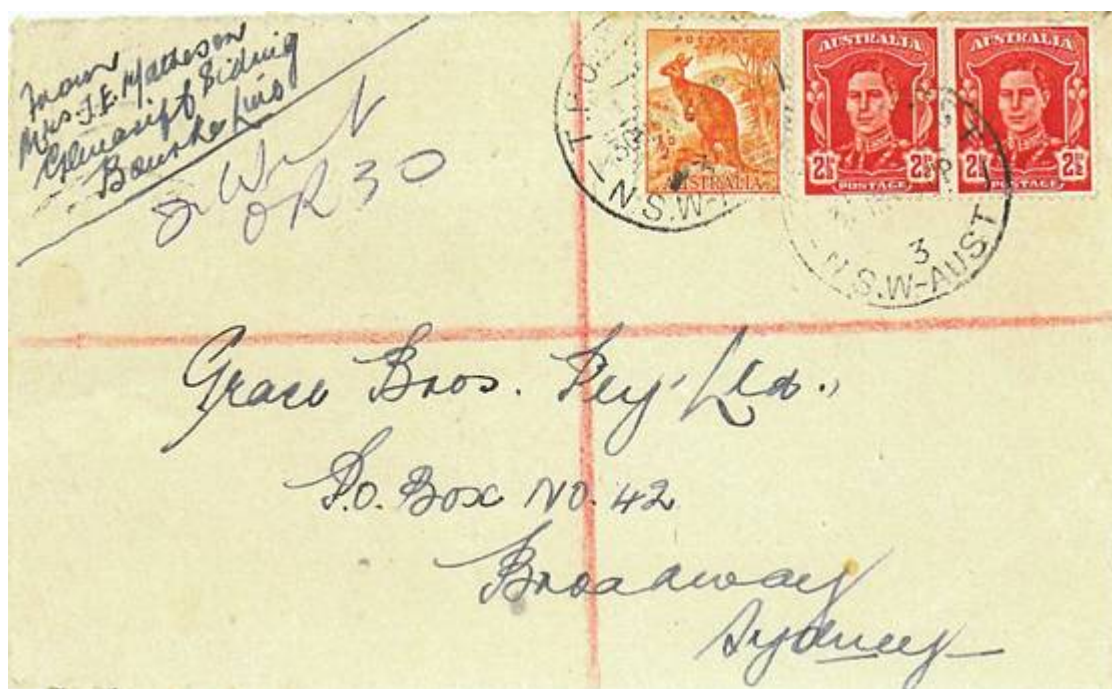 From
Mrs. J. E. Matheson
Siding
Bourke Line
OR 30
T.P.O.
N.S.W-
POSTAGE
AUSTRALIA
AUSTRALIA
2½ 2½
POSTAGE
AUSTRALIA
2½ 2½
POSTAGE
3
N.S.W-AUST
Grace Bros. Pty. Ltd.,
P.O. Box No. 42
Broadway
Sydney